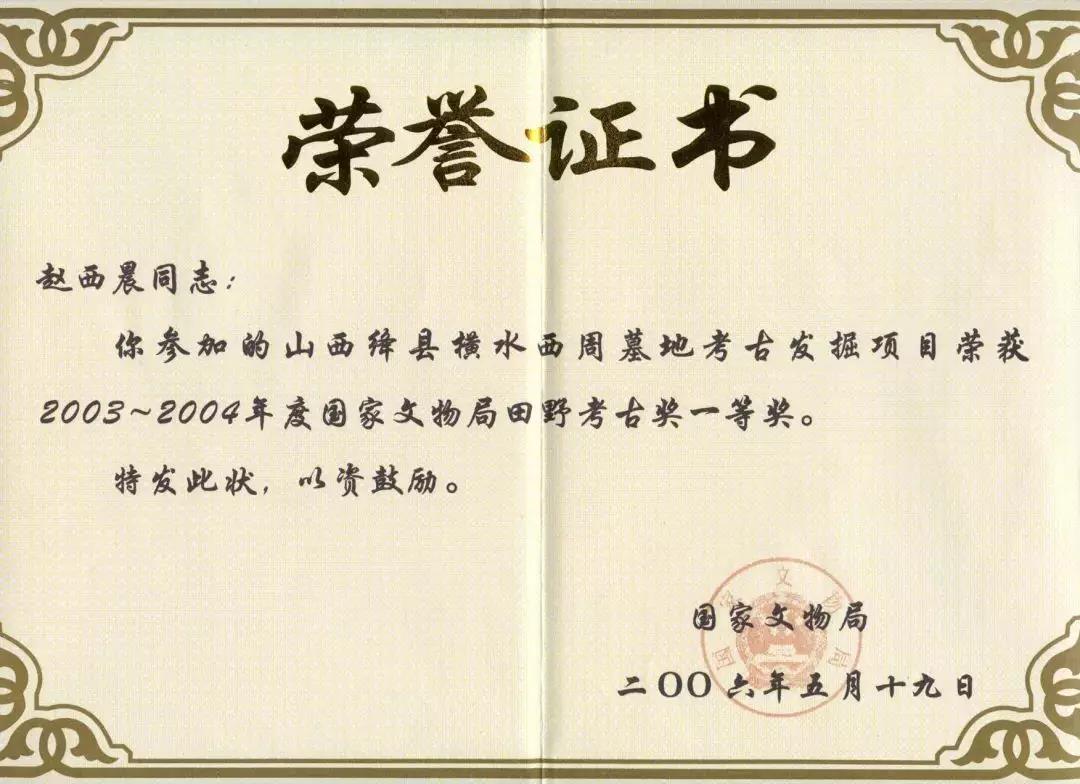 荣誉证书
赵西晨同志：
你参加的山西绛县横水西周墓地考古发掘项目荣获
2003~2004年度国家文物局田野考古奖一等奖。
特发此状，以资鼓励。
国家文物局
国家文物局
二OO六年五月十九日